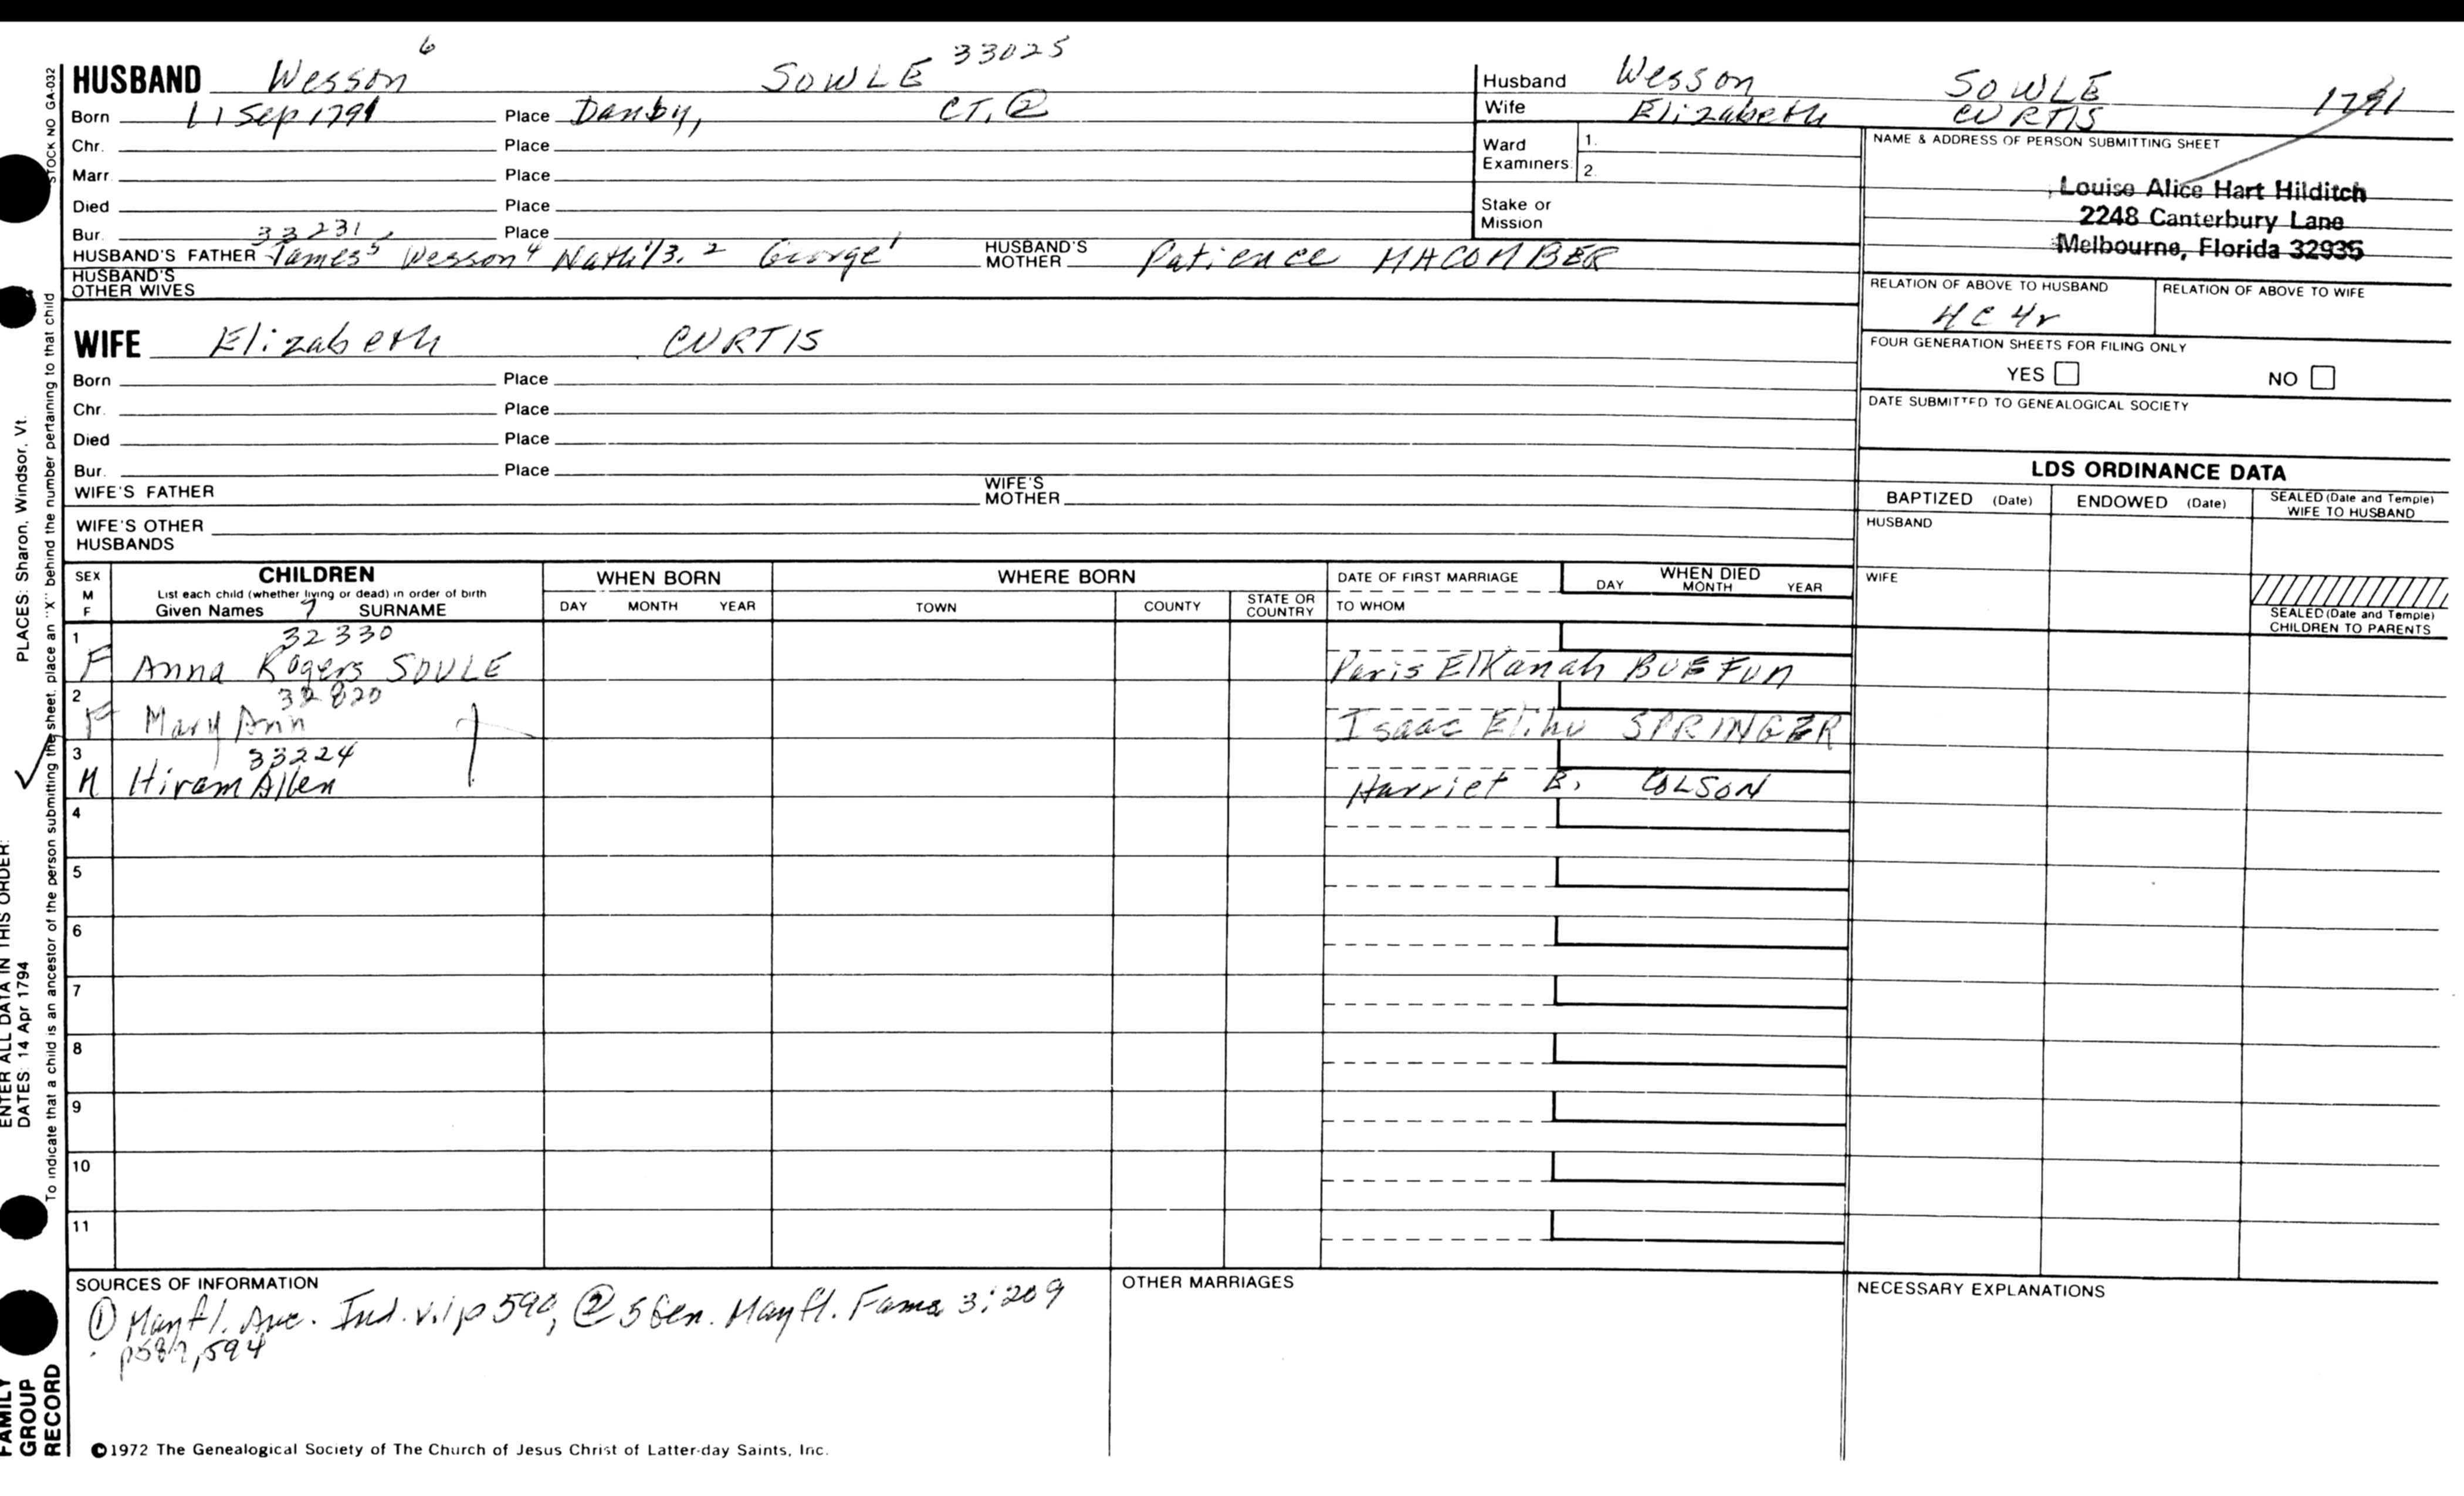 6
HUSBAND Wesson SOWLE 33025
Born 11 Sep 1791 Place Danby, CT. ②
Chr. Place
Marr. Place
Died Place
Bur. 33231 Place
HUSBAND'S FATHER James⁵ Wesson⁴ Nath'l³, ² George¹ HUSBAND'S MOTHER Patience MACOMBER
HUSBAND'S OTHER WIVES
WIFE Elizabeth CURTIS
Born Place
Chr. Place
Died Place
Bur. Place
WIFE'S FATHER WIFE'S MOTHER
WIFE'S OTHER HUSBANDS
Husband Wesson SOWLE 1791
Wife Elizabeth CURTIS
Ward Examiners: 1. 2.
Stake or Mission
NAME & ADDRESS OF PERSON SUBMITTING SHEET
Louise Alice Hart Hilditch
2248 Canterbury Lane
Melbourne, Florida 32935
RELATION OF ABOVE TO HUSBAND RELATION OF ABOVE TO WIFE
4C 4r
FOUR GENERATION SHEETS FOR FILING ONLY
YES NO
DATE SUBMITTED TO GENEALOGICAL SOCIETY
LDS ORDINANCE DATA
BAPTIZED (Date) ENDOWED (Date) SEALED (Date and Temple) WIFE TO HUSBAND
HUSBAND
WIFE
SEALED (Date and Temple) CHILDREN TO PARENTS
SEX M F
CHILDREN
List each child (whether living or dead) in order of birth
Given Names 7 SURNAME
WHEN BORN
DAY MONTH YEAR
WHERE BORN
TOWN COUNTY STATE OR COUNTRY
DATE OF FIRST MARRIAGE
TO WHOM
WHEN DIED
DAY MONTH YEAR
1 32330
F Anna Rogers SOULE Peris Elkanah BUFFUM
2 32820
F Mary Ann Isaac Elihu SPRINGER
3 33224
M Hiram Allen Harriet B. COLSON
4
5
6
7
8
9
10
11
SOURCES OF INFORMATION
① Mayfl. Anc. Ind. v.1 p590, ② 5 Gen. Mayfl. Fams 3:209
p587, 594
OTHER MARRIAGES
NECESSARY EXPLANATIONS
©1972 The Genealogical Society of The Church of Jesus Christ of Latter-day Saints, Inc.
STOCK NO GA-032
To indicate that a child is an ancestor of the person submitting the sheet, place an "X" behind the number pertaining to that child
PLACES: Sharon, Windsor, Vt.
ENTER ALL DATA IN THIS ORDER:
DATES: 14 Apr 1794
FAMILY
GROUP
RECORD